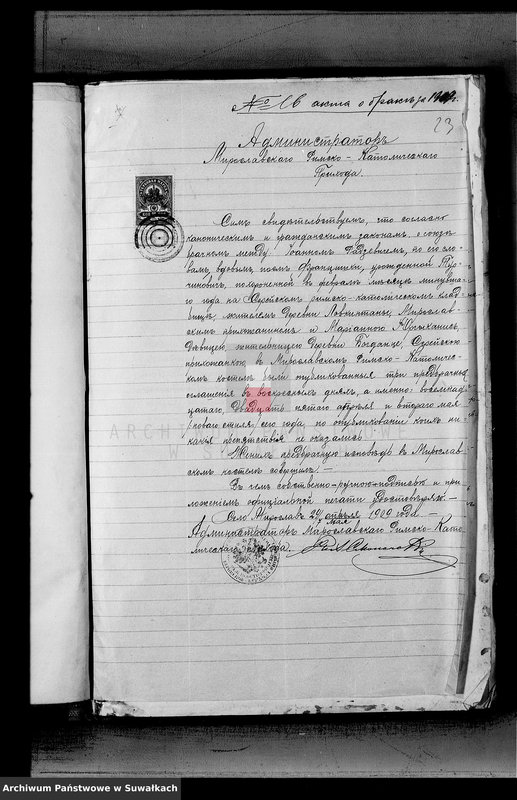 № 16 акта о бракѣ за 1909 г.
23
Администраторъ
Мирославскаго Римско-Католическаго
Прихода.
Симъ свидѣтельствуемъ, что согласно
каноническимъ и гражданскимъ законамъ о союзѣ
брачномъ между Іоанномъ по его сло-
вамъ, вдовымъ послѣ Францишки, урожденной
похороненной въ февралѣ мѣсяцѣ минувша-
го года на Серейскомъ римско-католическомъ клад-
бищѣ, жителемъ деревни Мирослав-
скимъ прихожаниномъ и Маріанною
дѣвицей, жительницею деревни Серейскою
прихожанкою, въ Мирославскомъ Римско-Католичес-
комъ костелѣ были опубликованныя три предбрачныя
оглашенія въ воскресныхъ дняхъ, а именно: восемнад-
цатаго, двадцать пятаго апрѣля и втораго мая
новаго стиля, сего года, по опубликованіи коихъ ни-
какія препятствія не оказались.
Женихъ предбрачную исповѣдь въ Мирослав-
скомъ костелѣ совершилъ. —
Въ чемъ собственно-ручною подписью и при-
ложеніемъ официальной печати удостовѣряю. —
Село Мирославъ апрѣля 1909 года
мая
Администраторъ Мирославскаго Римско-Като-
лическаго прихода
ARCHIWUM
W S
Archiwum Państwowe w Suwałkach